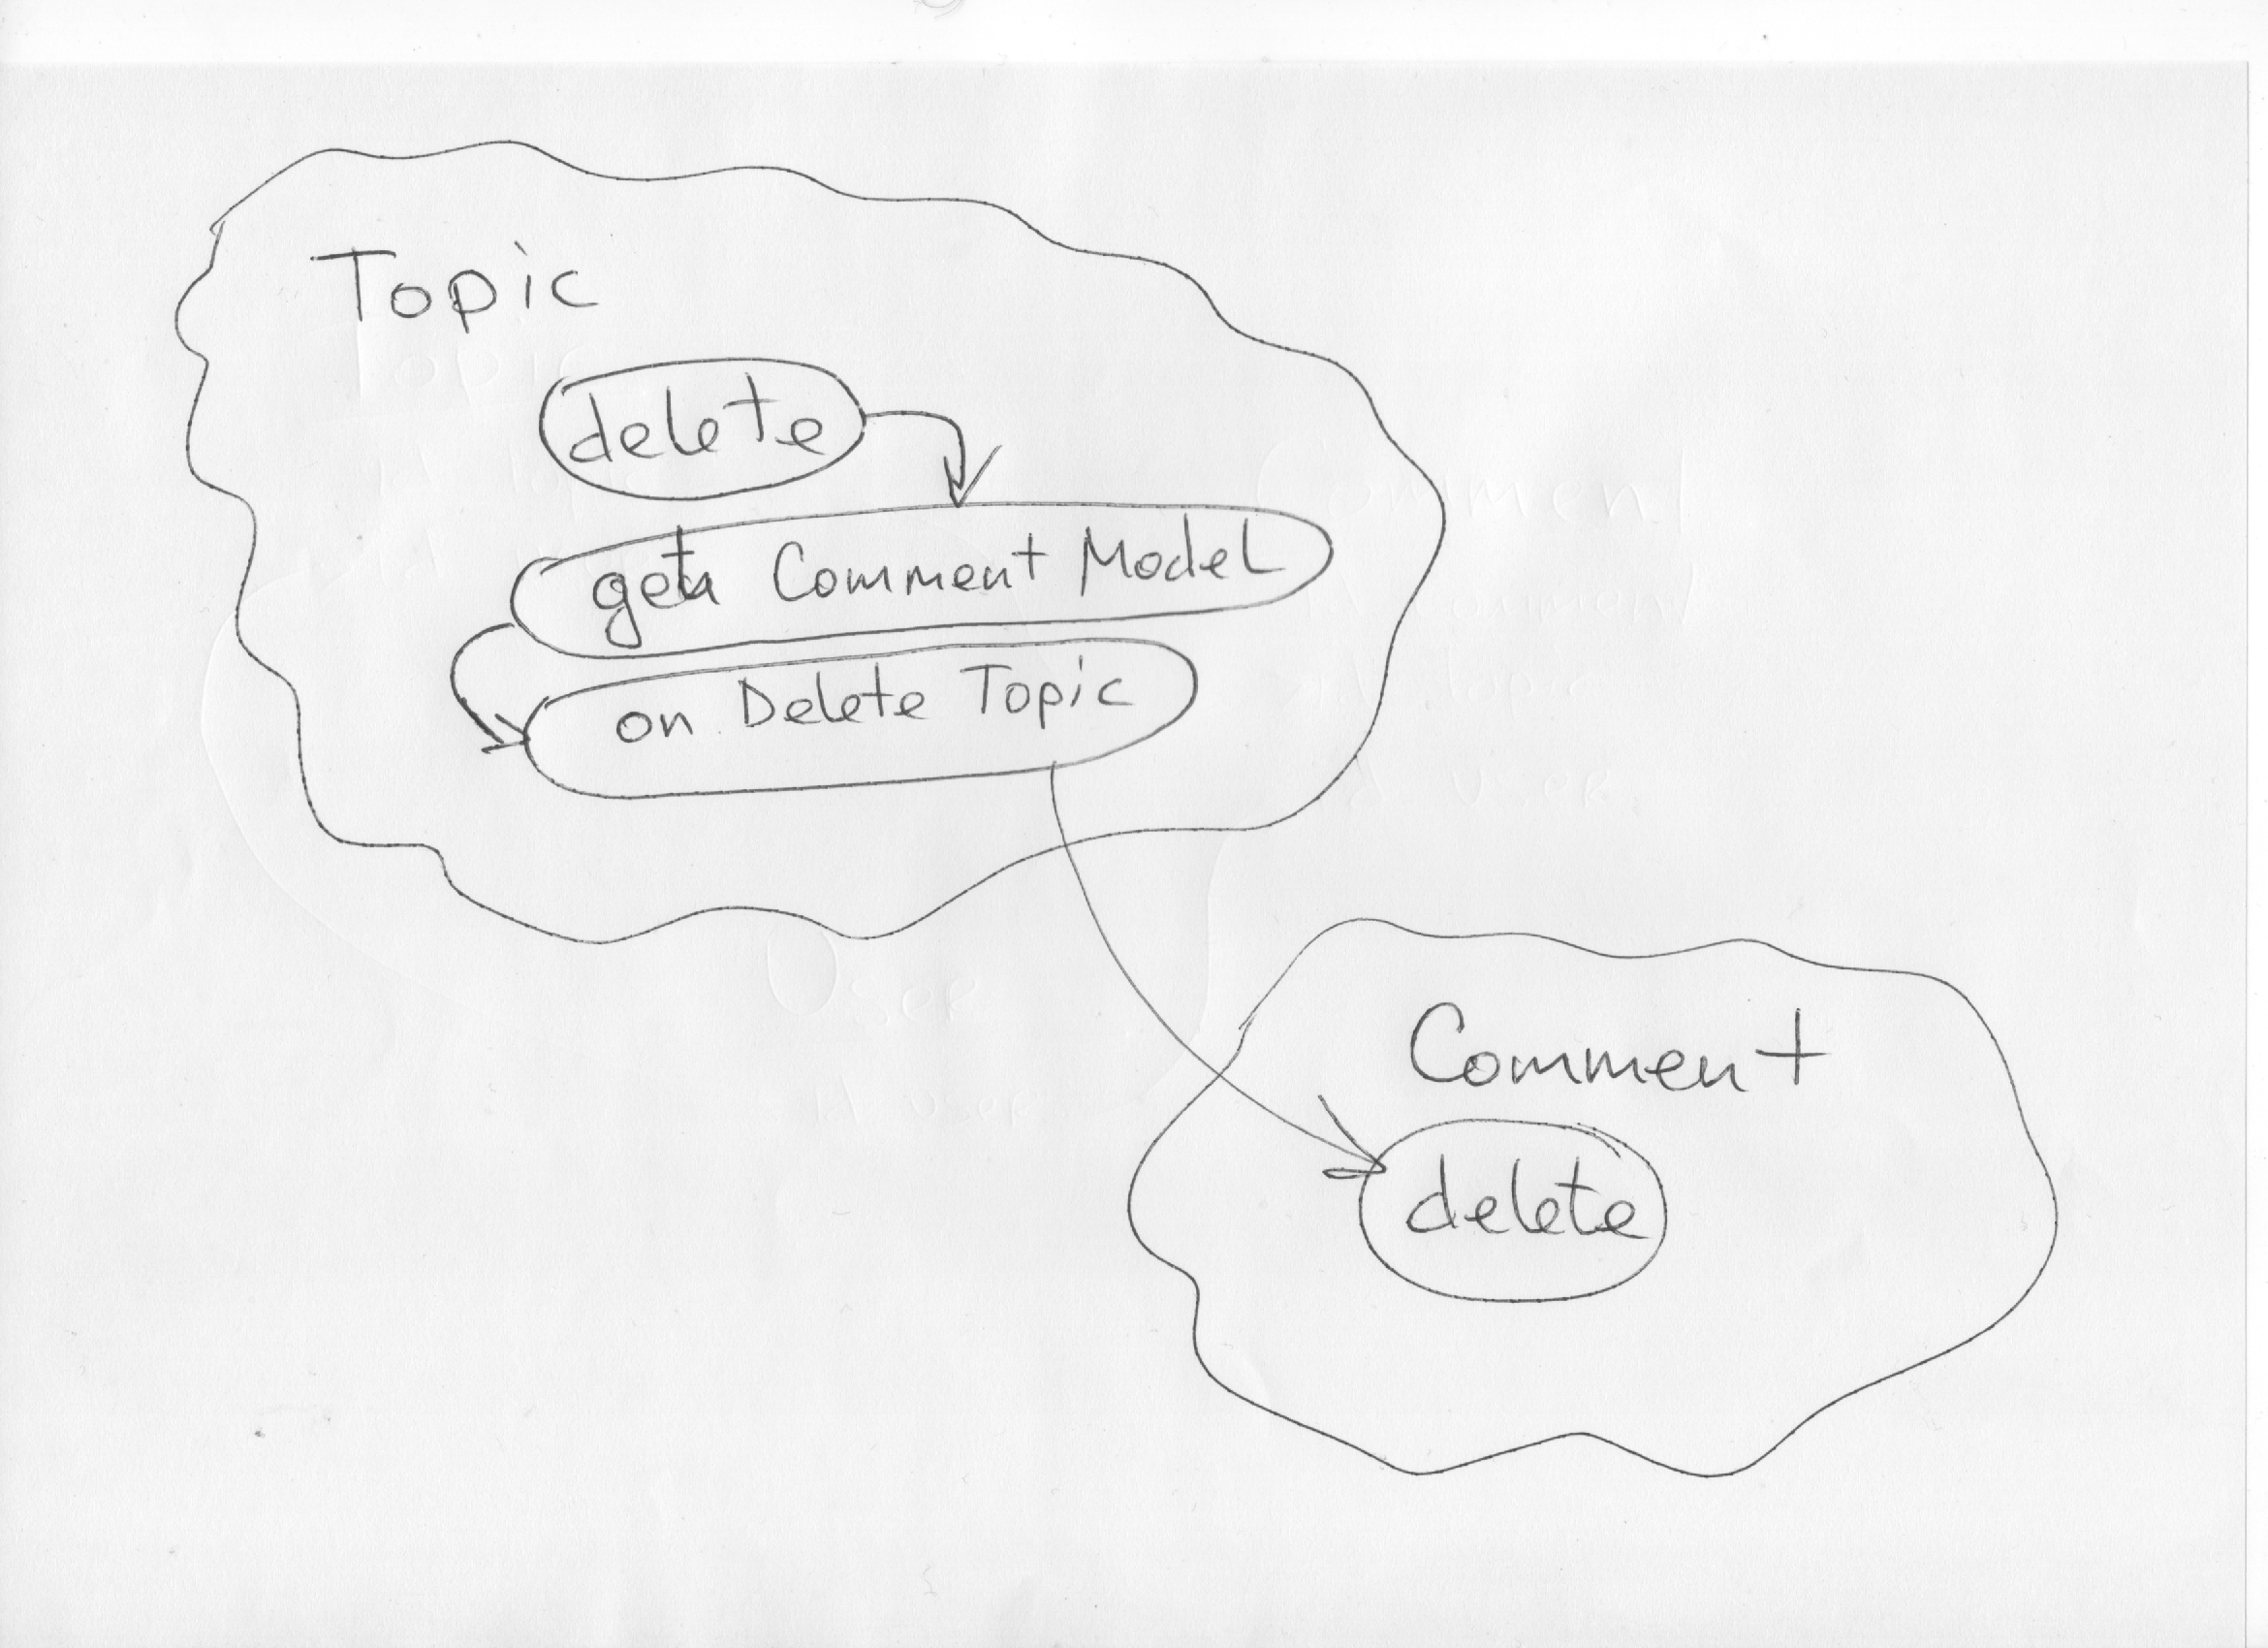 Topic
delete
get Comment Model
on Delete Topic
Comment
delete